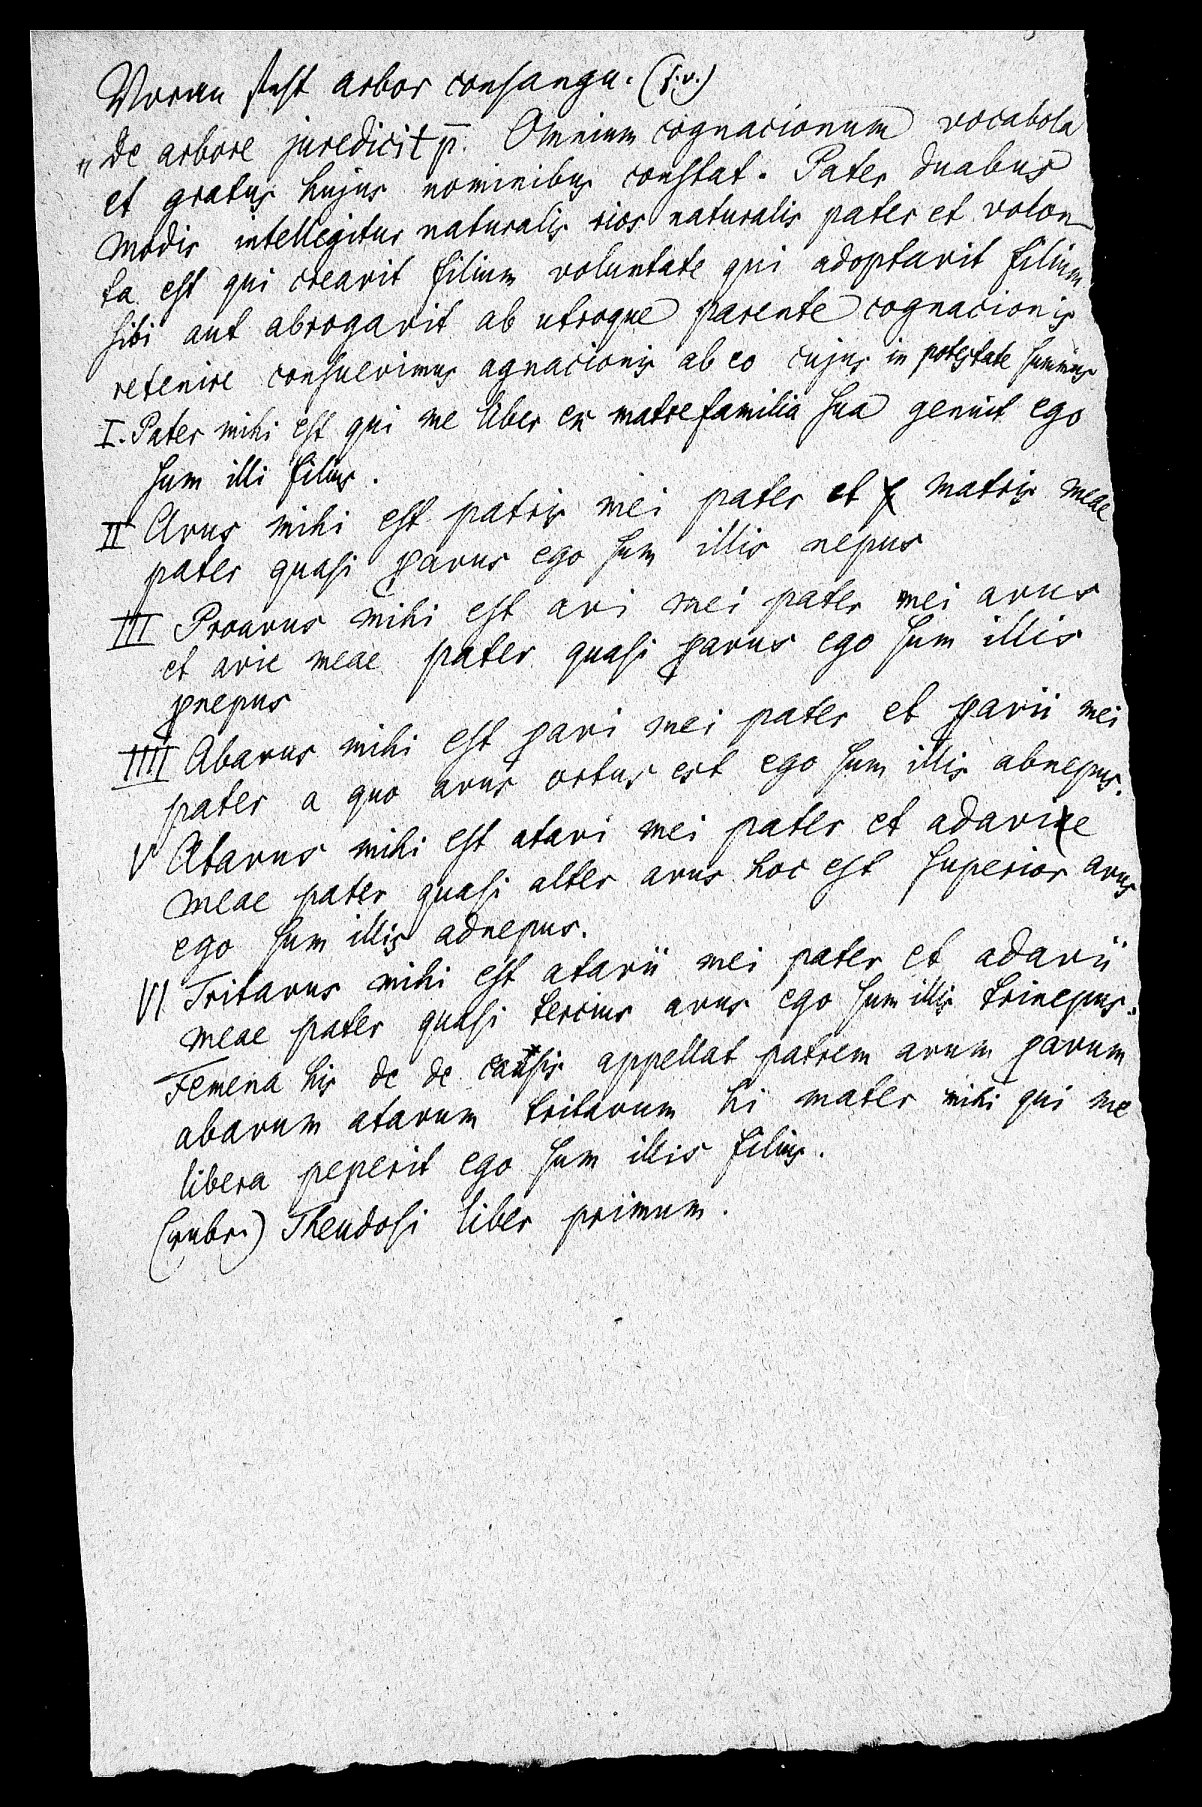 Voran steht arbor consangu. (s. v.)
"De arbore juredicit p̄. Omnium cognacionum vocabola
et gratus hujus nominibus constat. Pater duabus
modis intellegitur naturalis rios naturalis pater et volon-
ta est qui creavit filium voluntate qui adoptavit filium
sibi aut abrogavit ab utroque parente cognacionis
retenire consuevimus agnacionis ab eo cujus in potestate sumus
I. Pater mihi est qui me liber ex matrefamilia sua genuit ego
sum illi filius.
II Avus mihi est patris mei pater et matris meae
pater quasi pavus ego sum illis nepus
III Proavus mihi est avi mei pater mei avus
et avie meae pater quasi pavus ego sum illis
pnepus
IIII Abavus mihi est pavi mei pater et pavii mei
pater a quo avus ortus est ego sum illis abnepus.
V Atavus mihi est atavi mei pater et adavie
meae pater quasi alter avus hoc est superior avus
ego sum illis adnepus.
VI Tritavus mihi est atavii mei pater et adavii
meae pater quasi tercius avus ego sum illis trinepus.
Femena his de de causis appellat patrem avum pavum
abavum atavum tritavum hi mater mihi qui me
libera peperit ego sum illis filius.
(rubr.) Theudosi liber primum.